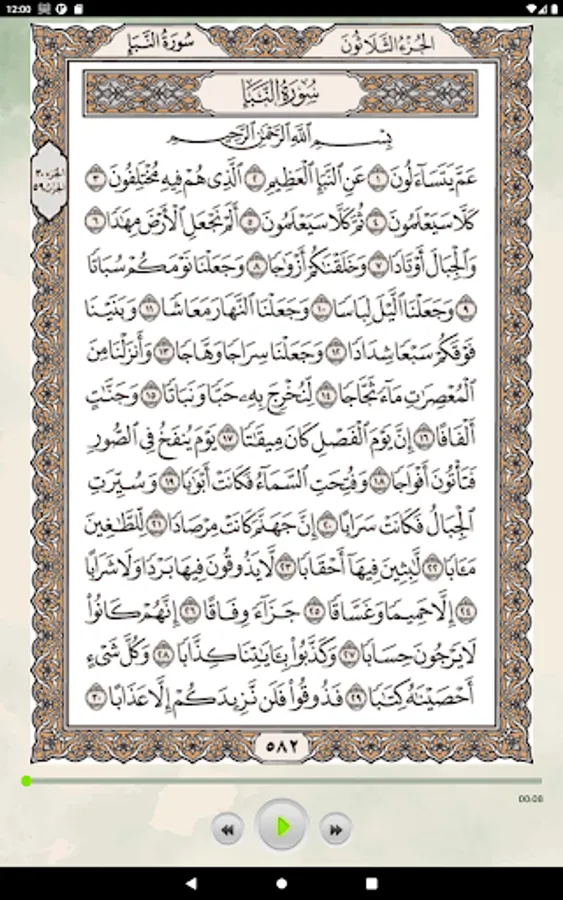 12:00
سُورَةُ النَّبَإِ
الجُزْءُ الثَّلَاثُونَ
سُورَةُ النَّبَإِ
بِسْمِ اللَّهِ الرَّحْمَٰنِ الرَّحِيمِ
الجزء ٣٠
الحزب ٥٩
عَمَّ يَتَسَآءَلُونَ ١ عَنِ النَّبَإِ الْعَظِيمِ ٢ الَّذِى هُمْ فِيهِ مُخْتَلِفُونَ ٣
كَلَّا سَيَعْلَمُونَ ٤ ثُمَّ كَلَّا سَيَعْلَمُونَ ٥ أَلَمْ نَجْعَلِ الْأَرْضَ مِهَٰدًا ٦
وَالْجِبَالَ أَوْتَادًا ٧ وَخَلَقْنَٰكُمْ أَزْوَٰجًا ٨ وَجَعَلْنَا نَوْمَكُمْ سُبَاتًا
٩ وَجَعَلْنَا الَّيْلَ لِبَاسًا ١٠ وَجَعَلْنَا النَّهَارَ مَعَاشًا ١١ وَبَنَيْنَا
فَوْقَكُمْ سَبْعًا شِدَادًا ١٢ وَجَعَلْنَا سِرَاجًا وَهَّاجًا ١٣ وَأَنزَلْنَا مِنَ
الْمُعْصِرَٰتِ مَآءً ثَجَّاجًا ١٤ لِّنُخْرِجَ بِهِۦ حَبًّا وَنَبَاتًا ١٥ وَجَنَّٰتٍ
أَلْفَافًا ١٦ إِنَّ يَوْمَ الْفَصْلِ كَانَ مِيقَٰتًا ١٧ يَوْمَ يُنفَخُ فِى الصُّورِ
فَتَأْتُونَ أَفْوَاجًا ١٨ وَفُتِحَتِ السَّمَآءُ فَكَانَتْ أَبْوَٰبًا ١٩ وَسُيِّرَتِ
الْجِبَالُ فَكَانَتْ سَرَابًا ٢٠ إِنَّ جَهَنَّمَ كَانَتْ مِرْصَادًا ٢١ لِّلطَّٰغِينَ
مَـَٔابًا ٢٢ لَّٰبِثِينَ فِيهَآ أَحْقَابًا ٢٣ لَّا يَذُوقُونَ فِيهَا بَرْدًا وَلَا شَرَابًا
٢٤ إِلَّا حَمِيمًا وَغَسَّاقًا ٢٥ جَزَآءً وِفَاقًا ٢٦ إِنَّهُمْ كَانُوا۟
لَا يَرْجُونَ حِسَابًا ٢٧ وَكَذَّبُوا۟ بِـَٔايَٰتِنَا كِذَّابًا ٢٨ وَكُلَّ شَىْءٍ
أَحْصَيْنَٰهُ كِتَٰبًا ٢٩ فَذُوقُوا۟ فَلَن نَّزِيدَكُمْ إِلَّا عَذَابًا ٣٠
٥٨٢
00:08